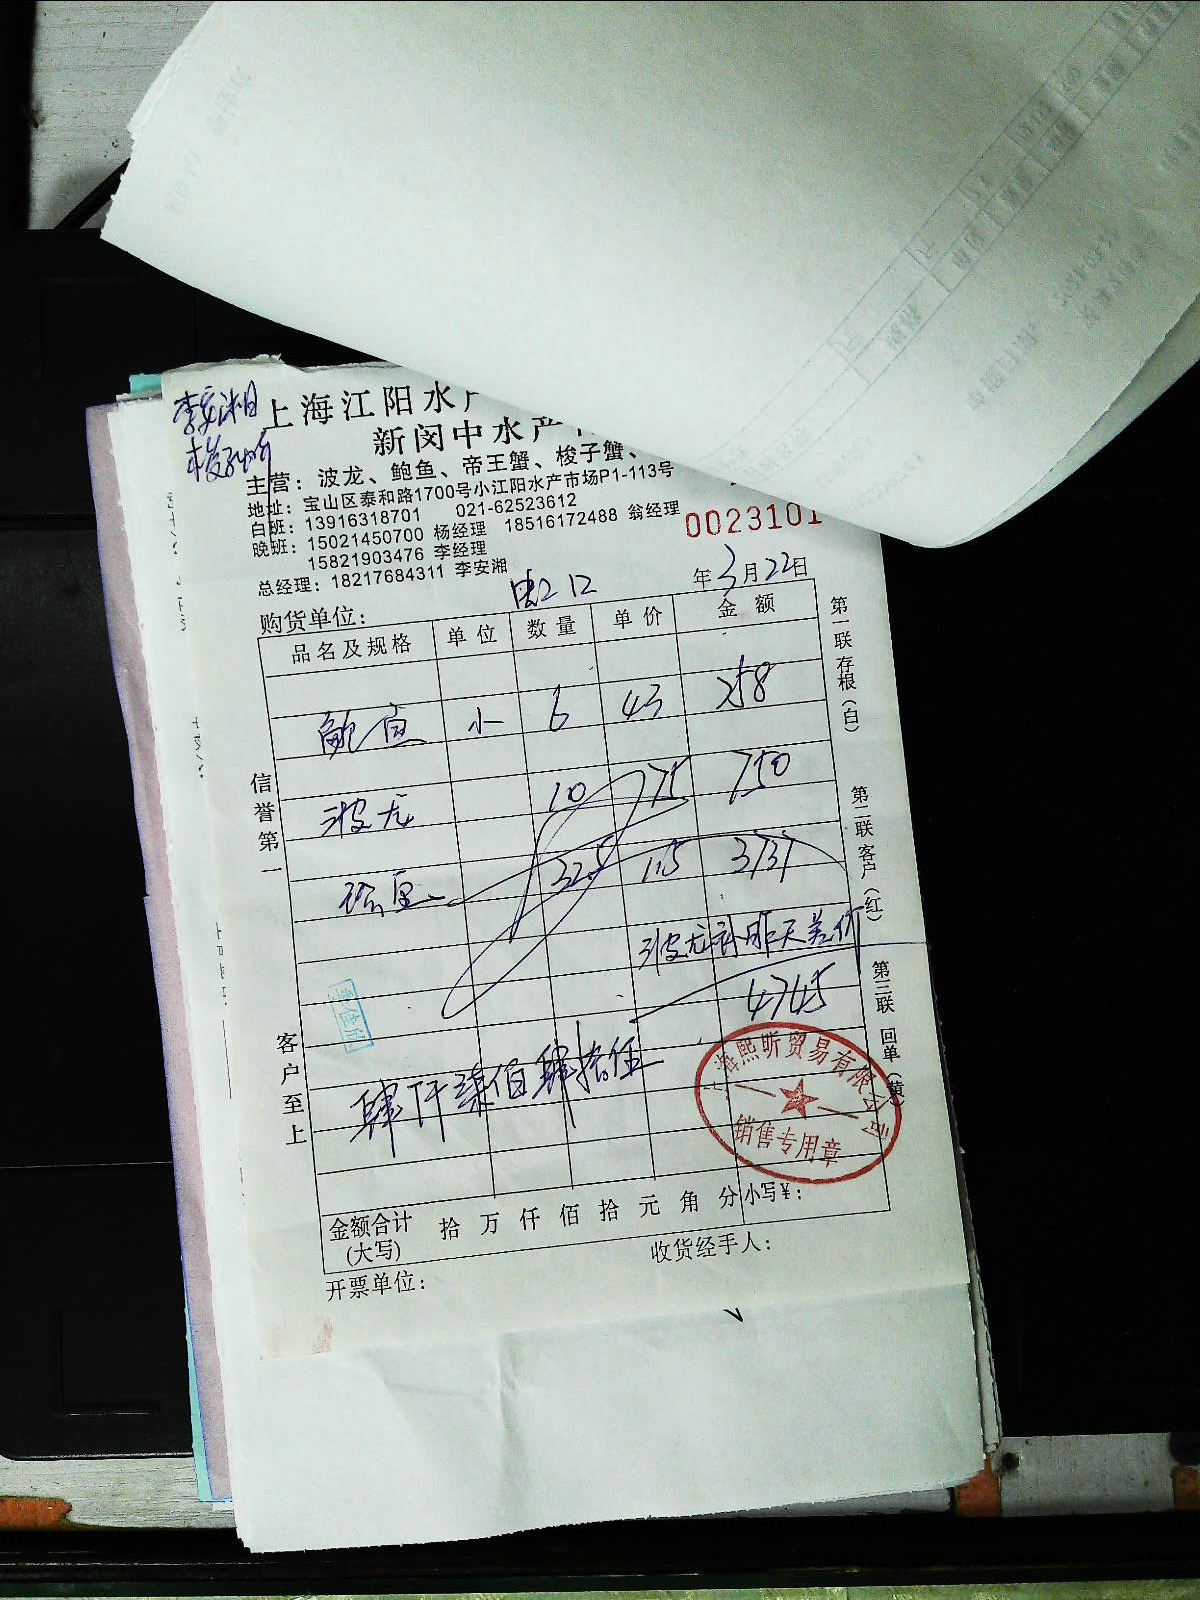 李安湘
上海江阳水产
新闵中水产
主营：波龙、鲍鱼、帝王蟹、梭子蟹、
地址：宝山区泰和路1700号小江阳水产市场P1-113号
白班：13916318701 021-62523612
晚班：15021450700 杨经理 18516172488 翁经理
15821903476 李经理
总经理：18217684311 李安湘
0023101
年3月22日
购货单位：
品名及规格 单位 数量 单价 金额
鲍鱼 小 6 43 258
波龙 10 75 750
32.5 115 3737
波龙补昨天差价
4745
肆仟柒佰肆拾伍
金额合计(大写) 拾 万 仟 佰 拾 元 角 分 小写¥：
收货经手人：
开票单位：
信誉第一
客户至上
第一联 存根（白）
第二联 客户（红）
第三联 回单（黄）
上海熙昕贸易有限公司
销售专用章